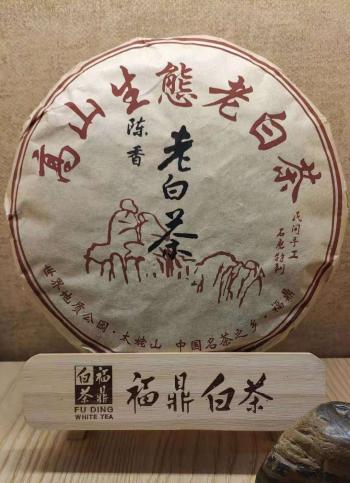 高山生態老白茶
陈香
老白茶
民间手工
石磨特制
世界地质公园·太姥山 中国名茶之乡·福鼎
福鼎
白茶
FU DING
WHITE TEA
福鼎白茶